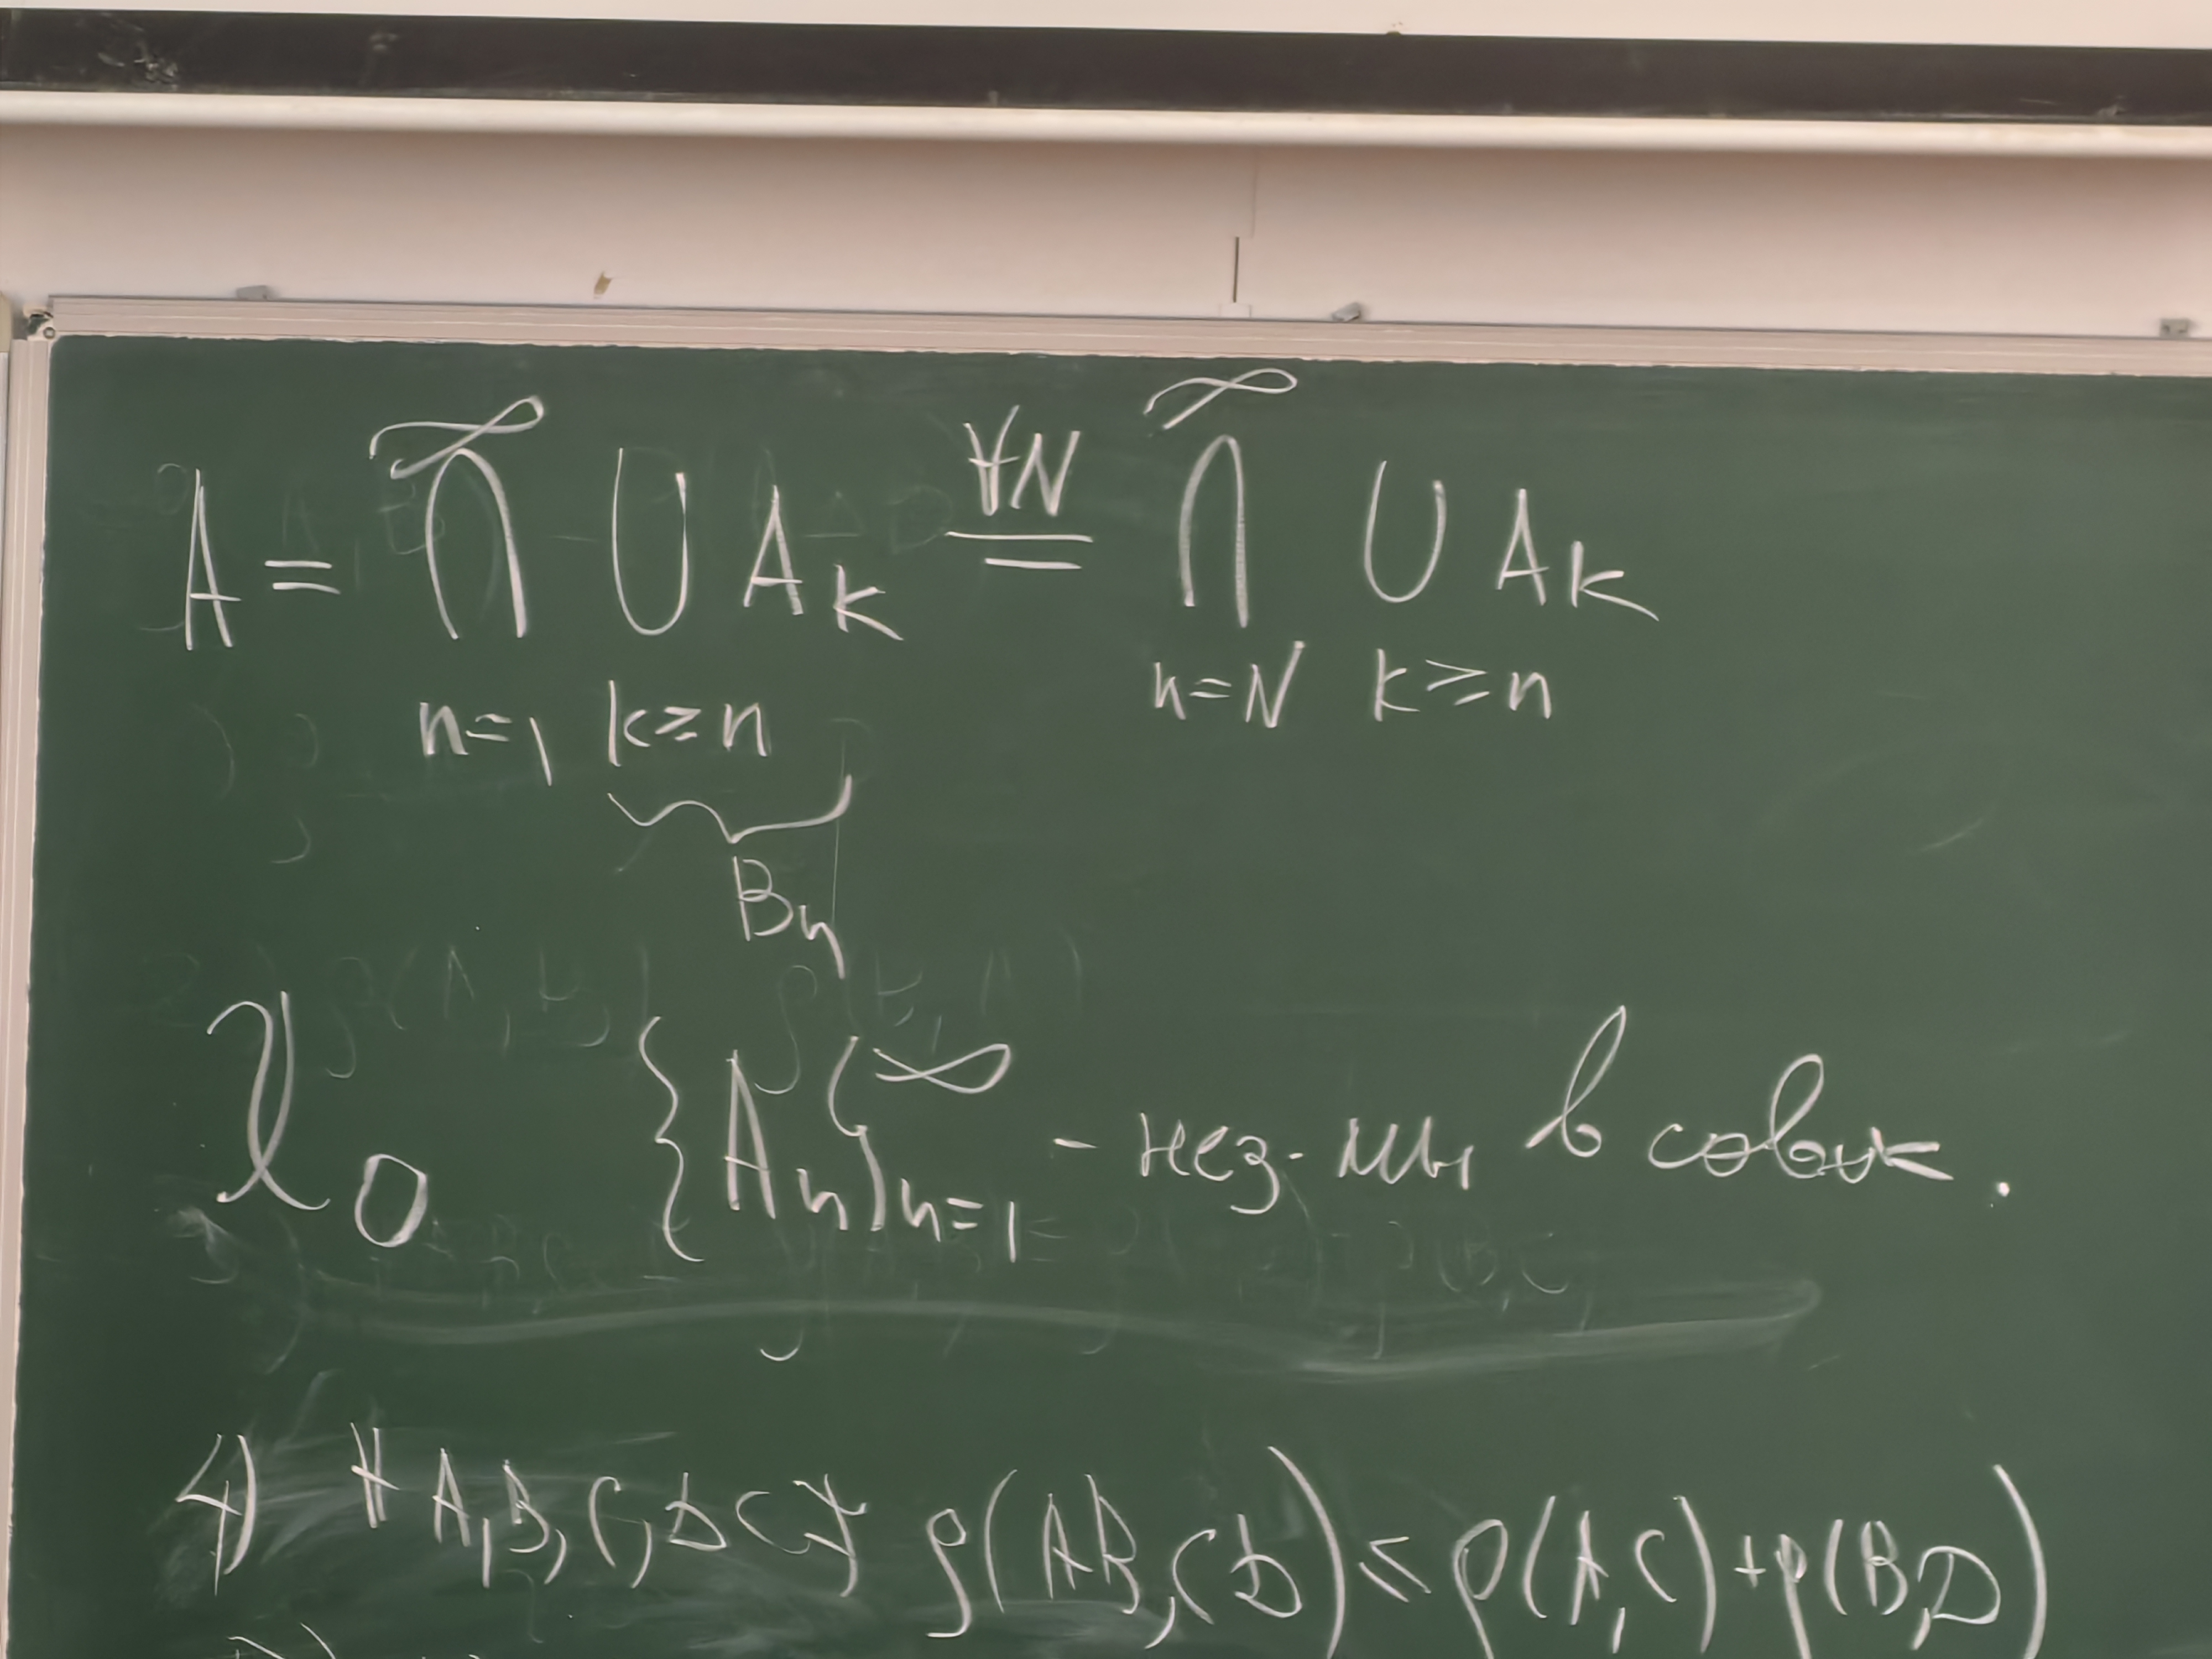 A = ⋂_{n=1}^{∞} ⋃_{k≥n} A_k \overset{∀N}{=} ⋂_{n=N}^{∞} ⋃_{k≥n} A_k
B_n
{A_n}_{n=1}^{∞} - нез-мы в совок.
4) ∀ A,B,C,D ⊂ ρ(AB,CD) ≤ ρ(A,C)+ρ(B,D)